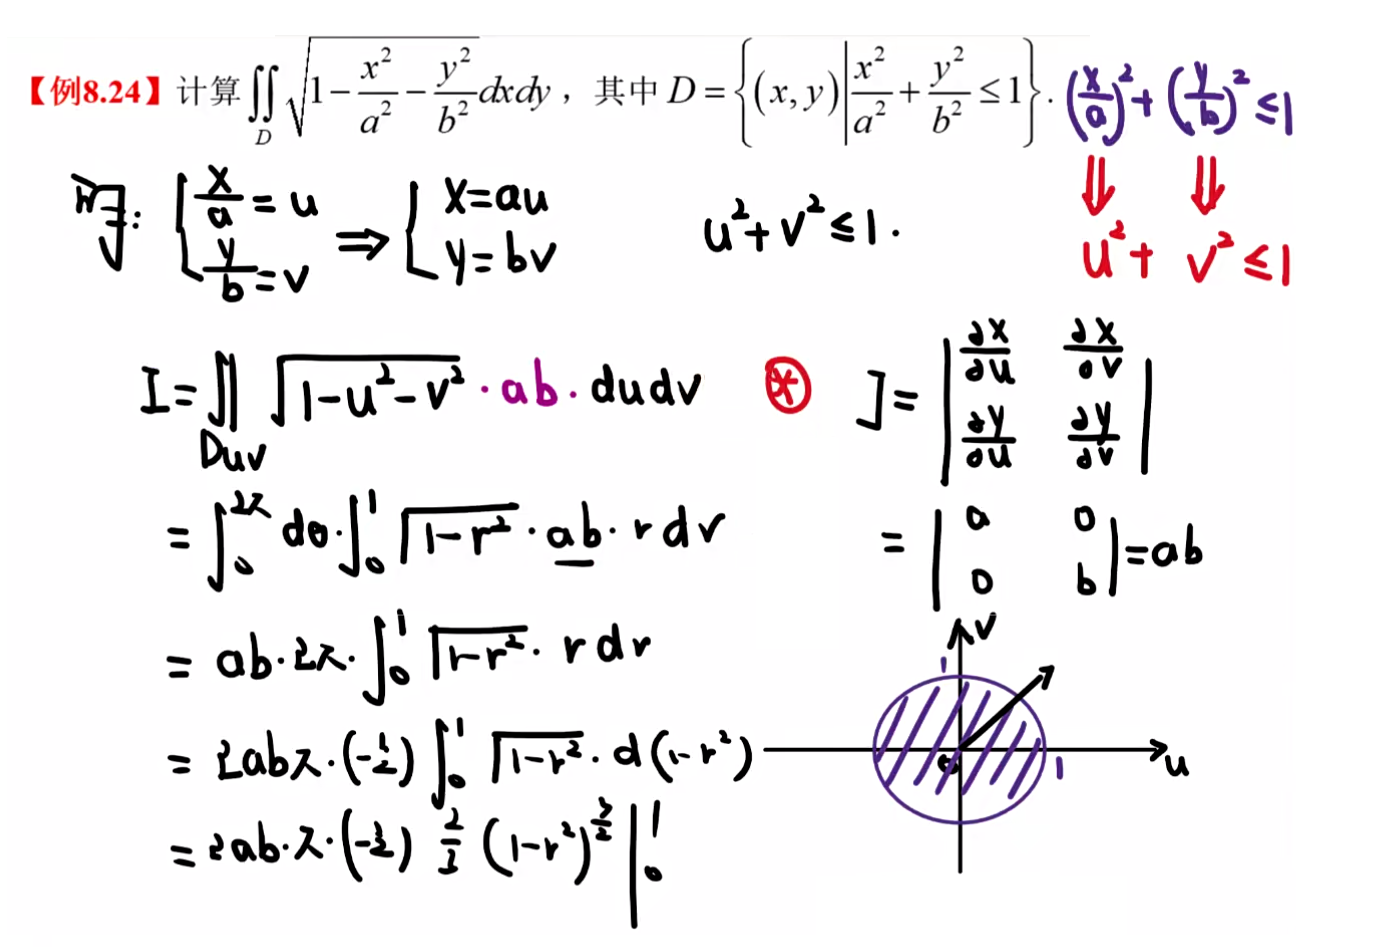 【例8.24】计算∬_D √(1−x²/a²−y²/b²) dxdy，其中 D={(x,y)|x²/a²+y²/b²≤1}. (x/a)²+(y/b)²≤1
⇓ ⇓
u²+ v²≤1
解: { x/a=u, y/b=v ⇒ { x=au, y=bv u²+v²≤1.
I=∬_Duv √(1-u²-v²)·ab·dudv ⊛ J=|∂x/∂u ∂x/∂v; ∂y/∂u ∂y/∂v|
=∫₀^2π dθ·∫₀¹ √(1-r²)·ab·rdr =|a 0; 0 b|=ab
=ab·2π·∫₀¹ √(1-r²)·rdr
v
1
=2abπ·(-1/2)∫₀¹ √(1-r²)·d(1-r²)
0 1 u
=2ab·π·(-1/2) 2/3 (1-r²)^(3/2) |₀¹